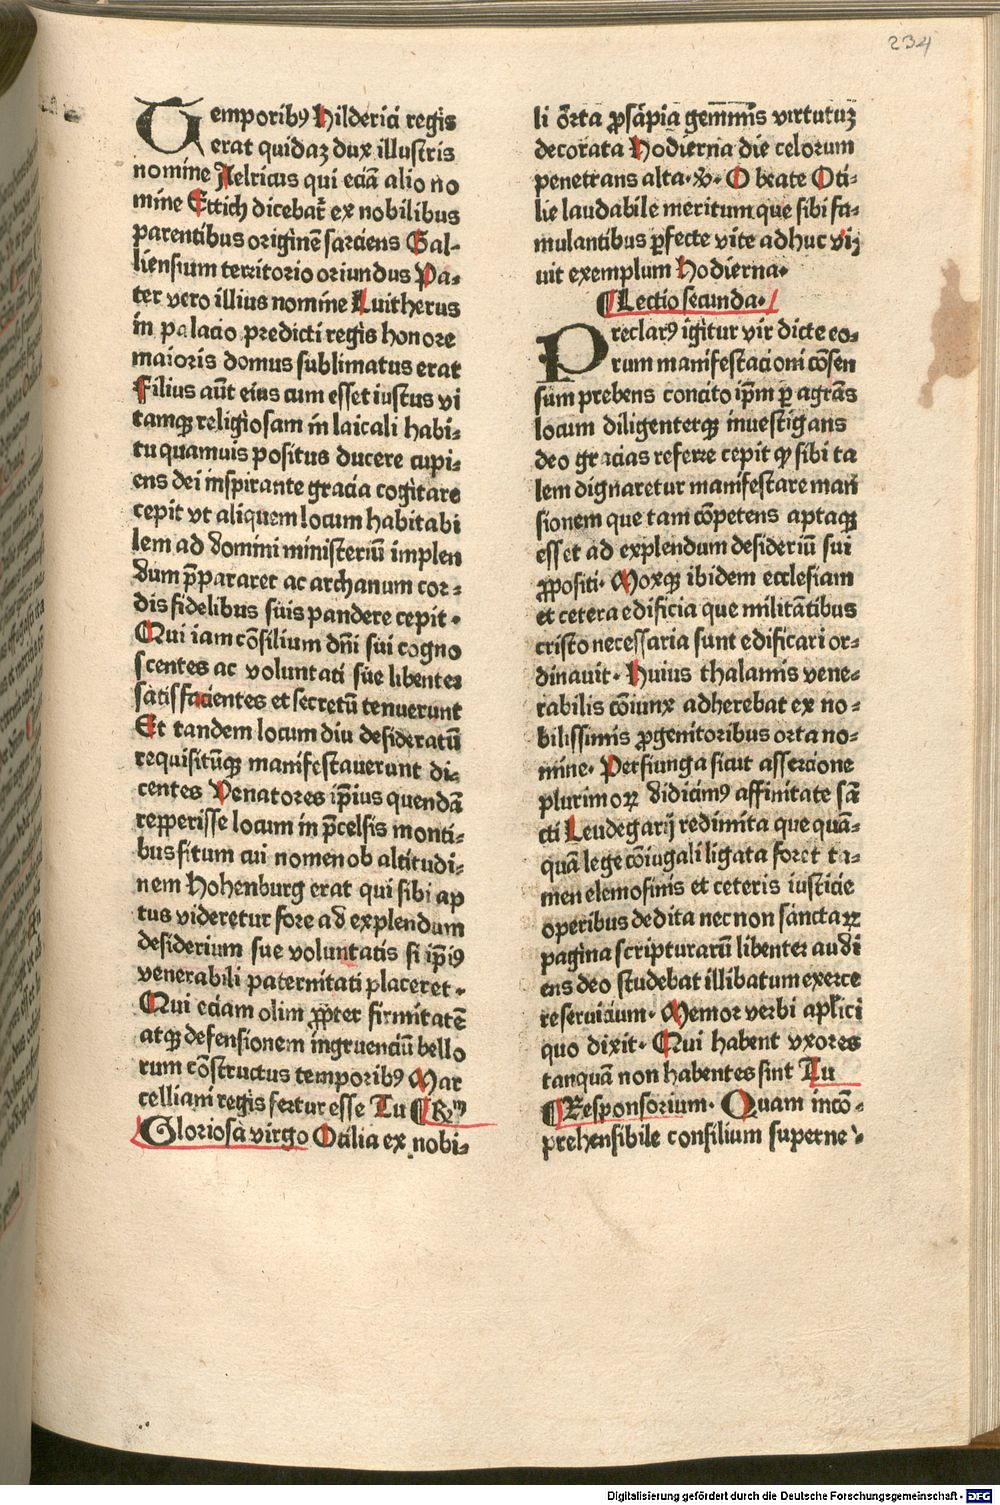 234
Temporibꝰ hilderici regis
erat quidaꝫ dux illustris
nomine Aelricus qui eciā alio no
mine Ettich dicebat̄ ex nobilibus
parentibus originē sarciens Gal⸗
liensium territorio oriundus Pa⸗
ter vero illius nomine Luitherus
in palacio predicti regis honore
maioris domus sublimatus erat
Filius aūt eius cum esset iustus vi
tamqꝫ religiosam in laicali habi⸗
tu quamuis positus ducere cupi⸗
ens dei inspirante gracia cogitare
cepit vt aliquem locum habitabi
lem ad domini ministeriū implen
dum p̄pararet ac archanum cor⸗
dis fidelibus suis pandere cepit·
Qui iam cōsilium dn̄i sui cogno
scentes ac voluntati sue libenter
satisfacientes et secretū tenuerunt
Et tandem locum diu desideratū
requisitūqꝫ manifestauerunt di⸗
centes Venatores ip̄ius quendā
repperisse locum in p̄celsis monti⸗
bus situm cui nomen ob altitudi⸗
nem Hohenburg erat qui sibi ap
tus videretur fore ad explendum
desiderium sue voluntatis si ip̄iꝰ
venerabili paternitati placeret·
Qui eciam olim ꝓpter firmitatē
atqꝫ defensionem ingruenciū bello
rum cōstructus temporibꝰ Mar
celliani regis fertur esse Tu ¶ Rm̄
Gloriosa virgo Otilia ex nobi⸗
li orta ꝓsapia gemmis virtutuꝫ
decorata Hodierna die celorum
penetrans alta· v̄· O beate Oti⸗
lie laudabile meritum que sibi fa⸗
mulantibus ꝑfecte vite adhuc vi⸗
uit exemplum Hodierna·
¶ Lectio secunda·
Preclarꝰ igitur vir dicte eo⸗
rum manifestacioni cōsen
sum prebens concito ip̄m ꝑagrās
locum diligenterqꝫ inuestigans
deo gracias referre cepit ꝙ sibi ta
lem dignaretur manifestare man
sionem que tam cōpetens aptaqꝫ
esset ad explendum desideriū sui
ꝓpositi· Moxqꝫ ibidem ecclesiam
et cetera edificia que militātibus
cristo necessaria sunt edificari or⸗
dinauit· Huius thalamis vene⸗
rabilis cōiunx adherebat ex no⸗
bilissimis ꝓgenitoribus orta no⸗
mine· Persiunga sicut assercione
plurimoꝝ didicimꝰ affinitate sā
cti Leudegarij redimita que quā⸗
quā lege cōiugali ligata foret ta⸗
men elemosinis et ceteris iusticie
operibus dedita necnon sanctaꝝ
pagina scripturarū libenter audi
ens deo studebat illibatum exerce
re seruicium· Memor verbi apl̄ici
quo dixit· Qui habent vxores
tanquā non habentes sint Tu
¶ Responsorium· Quam incō⸗
prehensibile consilium superne
Digitalisierung gefördert durch die Deutsche Forschungsgemeinschaft - DFG